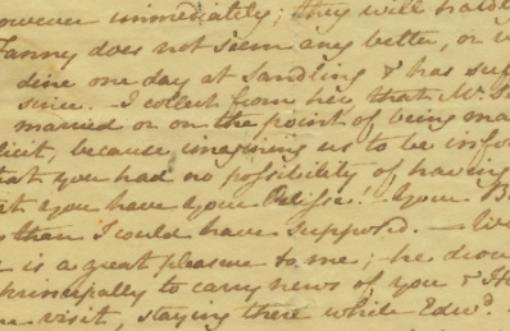 however immediately; they will hardl
Fanny does not seem any better, or
dine one day at Sandling & has suf
since. - I collect from her, that Mr.
married or on the point of being ma
licit, because imagining us to be infor
that you had no possibility of having
at you have your Pelisse! - Your B
than I could have supposed. -
is a great pleasure to me; - he
principally to carry news of you & H
visit, staying there while Edwd.